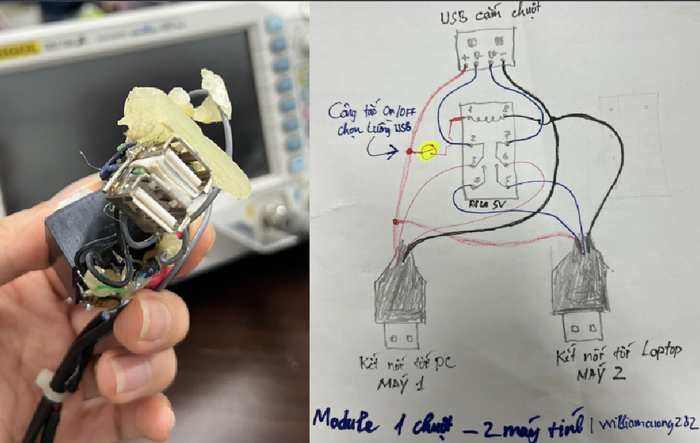 USB cắm chuột
+ D- D+ -
Công tắc ON/OFF
chọn luồng USB
1 8
2 7
3 6
4 5
Rơ le 5V
Kết nối tới PC
MÁY 1
Kết nối tới Laptop
MÁY 2
Module 1 chuột - 2 máy tính | williamcuong282